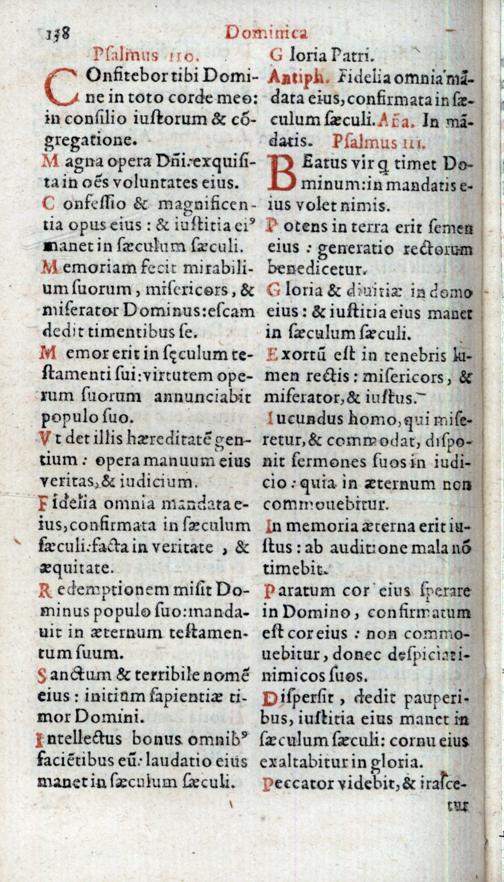 138
Dominica
Psalmus 110.
COnfitebor tibi Domi-
ne in toto corde meo:
in consilio iustorum & cõ-
gregatione.
Magna opera Dñi: exquisi-
ta in oẽs voluntates eius.
Confessio & magnificen-
tia opus eius : & iustitia ei⁹
manet in sæculum sæculi.
Memoriam fecit mirabili-
um suorum, misericors, &
miserator Dominus: escam
dedit timentibus se.
Memor erit in sęculum te-
stamenti sui: virtutem ope-
rum suorum annunciabit
populo suo.
Vt det illis hæreditatẽ gen-
tium : opera manuum eius
veritas, & iudicium.
Fidelia omnia mandata e-
ius, confirmata in sæculum
sæculi: facta in veritate , &
æquitate.
Redemptionem misit Do-
minus populo suo: manda-
uit in æternum testamen-
tum suum.
Sanctum & terribile nomẽ
eius : initium sapientiæ ti-
mor Domini.
Intellectus bonus omnib⁹
faciẽtibus eũ: laudatio eius
manet in sæculum sæculi.
Gloria Patri.
Antiph. Fidelia omnia mã-
data eius, confirmata in sæ-
culum sæculi. Añа. In mã-
datis. Psalmus 111.
BEatus vir q timet Do-
minum: in mandatis e-
ius volet nimis.
Potens in terra erit semen
eius : generatio rectorum
benedicetur.
Gloria & diuitiæ in domo
eius : & iustitia eius manet
in sæculum sæculi.
Exortũ est in tenebris lu-
men rectis : misericors, &
miserator, & iustus.
Iucundus homo, qui mise-
retur, & commodat, dispo-
nit sermones suos in iudi-
cio : quia in æternum non
commouebitur.
In memoria æterna erit iu-
stus : ab auditione mala nõ
timebit.
Paratum cor eius sperare
in Domino, confirmatum
est cor eius : non commo-
uebitur, donec despiciat i-
nimicos suos.
Dispersit , dedit pauperi-
bus, iustitia eius manet in
sæculum sæculi: cornu eius
exaltabitur in gloria.
Peccator videbit, & irasce-
tur